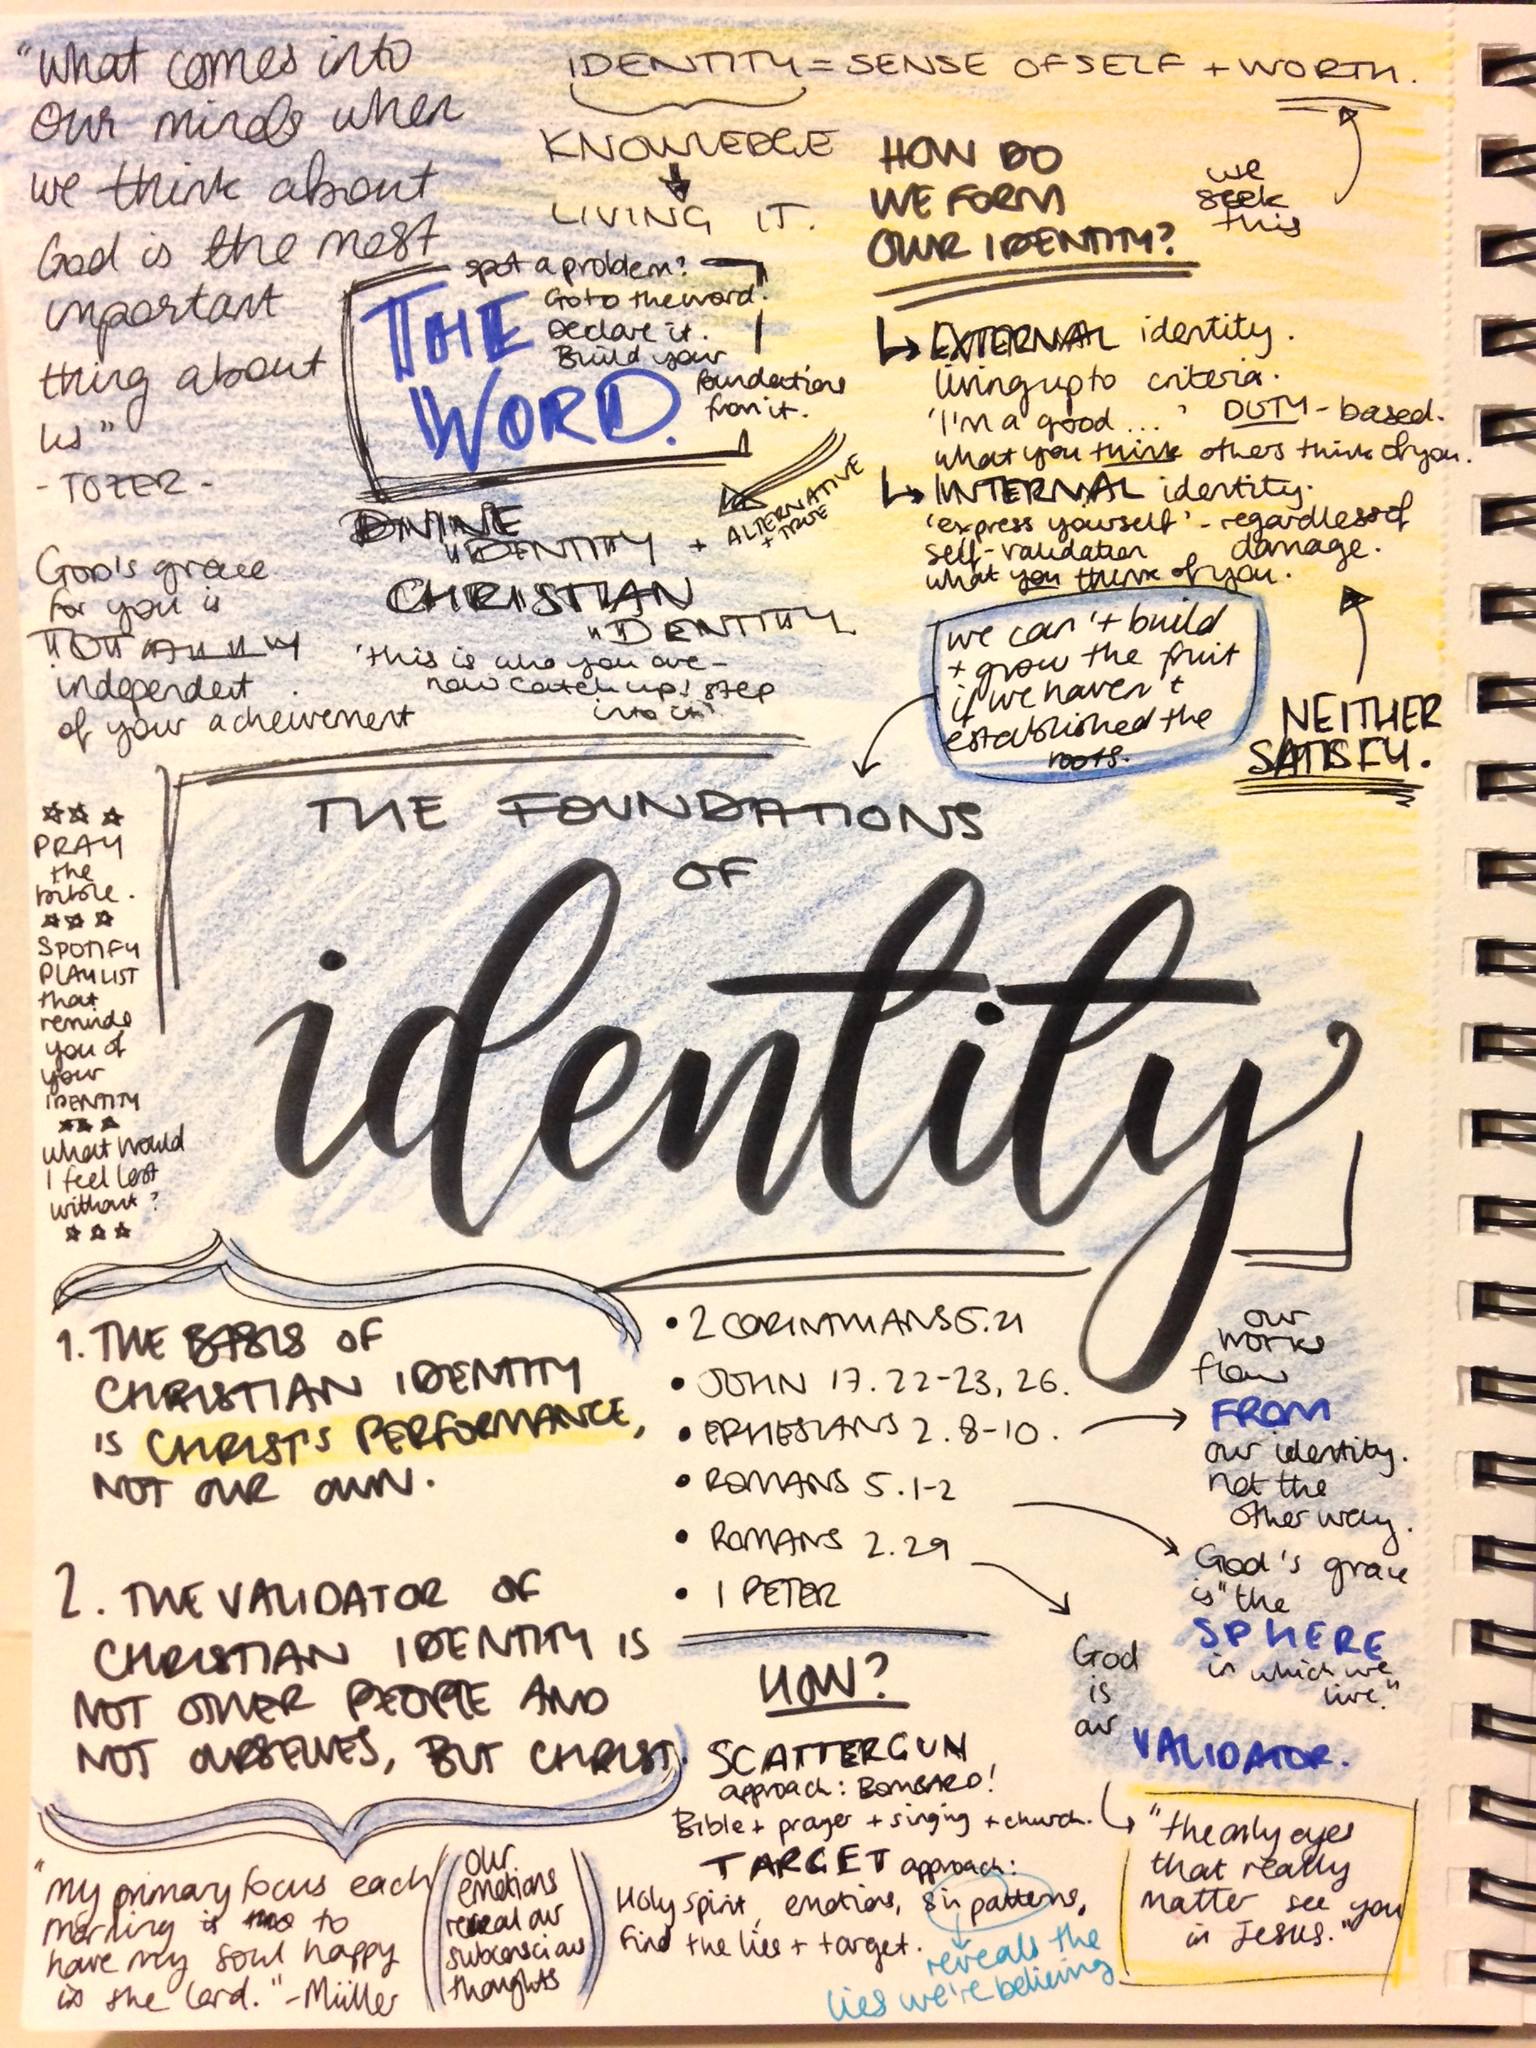 "what comes into
our minds when
we think about
God is the most
important
thing about
us"
- TOZER -
God's grace
for you is
TOTALLY
independent
of your acheivement
IDENTITY = SENSE OF SELF + WORTH.
KNOWLEDGE
LIVING IT.
we
seek
this
spot a problem?
Go to the word.
Declare it.
Build your
foundations
from it.
THE
WORD.
DIVINE
IDENTITY +
CHRISTIAN
IDENTITY
'this is who you are -
now catch up! step
into it'
ALTERNATIVE
+ TRUE
HOW DO
WE FORM
OUR IDENTITY?
EXTERNAL identity.
living up to criteria.
'I'm a good ... ' DUTY-based.
what you think others think of you.
INTERNAL identity.
'express yourself' - regardless of
self-validation damage.
what you think of you.
we can't build
+ grow the fruit
if we haven't
established the
roots.
NEITHER
SATISFY.
THE FOUNDATIONS
OF
identity
PRAY
the
bible.
SPOTIFY
PLAYLIST
that
reminds
you of
your
IDENTITY
what would
I feel lost
without?
1. THE BASIS OF
CHRISTIAN IDENTITY
IS CHRIST'S PERFORMANCE,
NOT OUR OWN.
2. THE VALIDATOR OF
CHRISTIAN IDENTITY IS
NOT OTHER PEOPLE AND
NOT OURSELVES, BUT CHRIST.
• 2 CORINTHIANS 5.21
• JOHN 17. 22-23, 26.
• EPHESIANS 2. 8-10.
• ROMANS 5. 1-2
• ROMANS 2.29
• 1 PETER
our
works
flow
FROM
our identity.
not the
other way.
God's grace
is "the
SPHERE
in which we
live."
God
is
our
VALIDATOR.
"the only eyes
that really
matter see you
in Jesus."
HOW?
SCATTERGUN
approach: BOMBARD!
Bible + prayer + singing + church.
TARGET approach:
Holy spirit, emotions, sin patterns,
find the lies + target.
reveals the
lies we're believing
"my primary focus each
morning is to
have my soul happy
in the Lord." - Müller
our
emotions
reveal our
subconscious
thoughts